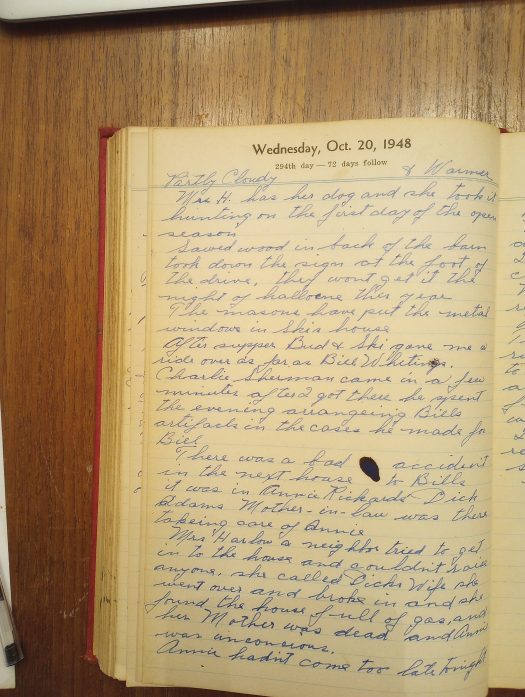 Wednesday, Oct. 20, 1948
294th day — 72 days follow
Partly Cloudy & Warmer
Mrs H. has her dog and she took it
hunting on the first day of the open
season
Sawed wood in back of the barn
took down the sign at the foot of
the drive, they wont get it the
night of hallocne this year
The masons have put the metal
windows in Skis house
After supper Bud & Ski gave me a
ride over as far as Bill Whitings.
Charlie Sherman came in a few
minutes after I got there he spent
the evening arrangeing Bills
artifacts in the cases he made for
Bill
There was a bad accident
in the next house to Bills
it was in Annie Rickards Dick
Adams Mother-in-law was there
takeing care of Annie
Mrs Harlow a neighbor tried to get
in to the house and couldn't raise
anyone, she called Dicks Wife she
went over and broke in and she
found the house full of gas, and
her Mother was dead and Annie
was unconcious,
Annie hadn't come too late tonight